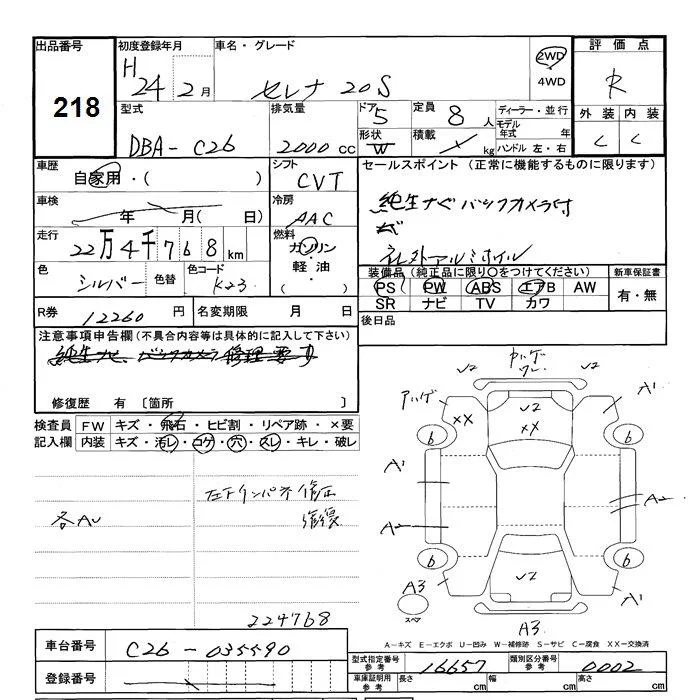 出品番号 初度登録年月 車名・グレード 評価点
218
H 24 2月 セレナ 20S 2WD 4WD R
型式 排気量 ドア 5 定員 8人 ディーラー・並行 外装 内装
DBA- C26 2000 cc 形状 W 積載 kg モデル年式 年 ハンドル 左・右 C C
車歴 自家用・( ) シフト CVT セールスポイント (正常に機能するものに限ります)
車検 年 月( 日) 冷房 AAC 純生ナビ バックカメラ付
走行 22万4千768km 燃料 ガソリン・軽油・( ) 社外アルミホイル
色 シルバー 色替 色コード K23 装備品(純正品に限り○をつけてください) 新車保証書
PS PW ABS エアB AW 有・無
SR ナビ TV カワ
R券 12260円 名変期限 月 日 後日品
注意事項申告欄(不具合内容等は具体的に記入して下さい)
純生ナビ バックカメラ 修理要す
修復歴 有〔箇所 〕
検査員記入欄 FW キズ・飛石・ヒビ割・リペア跡・×要
内装 キズ・汚レ・コゲ・穴・スレ・キレ・破レ
各AU
修正
修復
224768
アハゲ
ワレ
√2 √2
アハゲ ×× √2 ×× A1
6 6
A1
A2 A2
6 6
√2
A3 A1
スペア
A3
A-キズ E-エクボ U-凹み W-補修跡 S-サビ C-腐食 XX-交換済
車台番号 C26 - 035590
登録番号
型式指定番号 参考 16657 類別区分番号 参考 0002
車庫証明用 参考 長さ cm 幅 cm 高さ cm